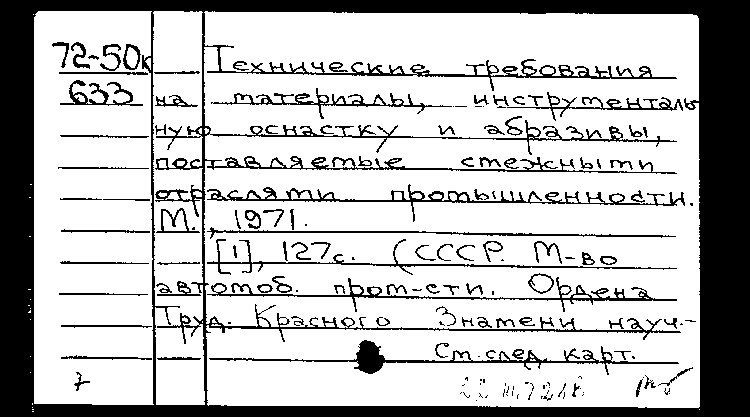 72-50к Технические требования
633 на материалы, инструменталь
ную оснастку и абразивы,
поставляемые смежными
отраслями промышленности.
М., 1971.
[1], 127с. (СССР. М-во
автомоб. пром-сти. Ордена
Труд. Красного Знамени науч.-
См. след. карт.
7